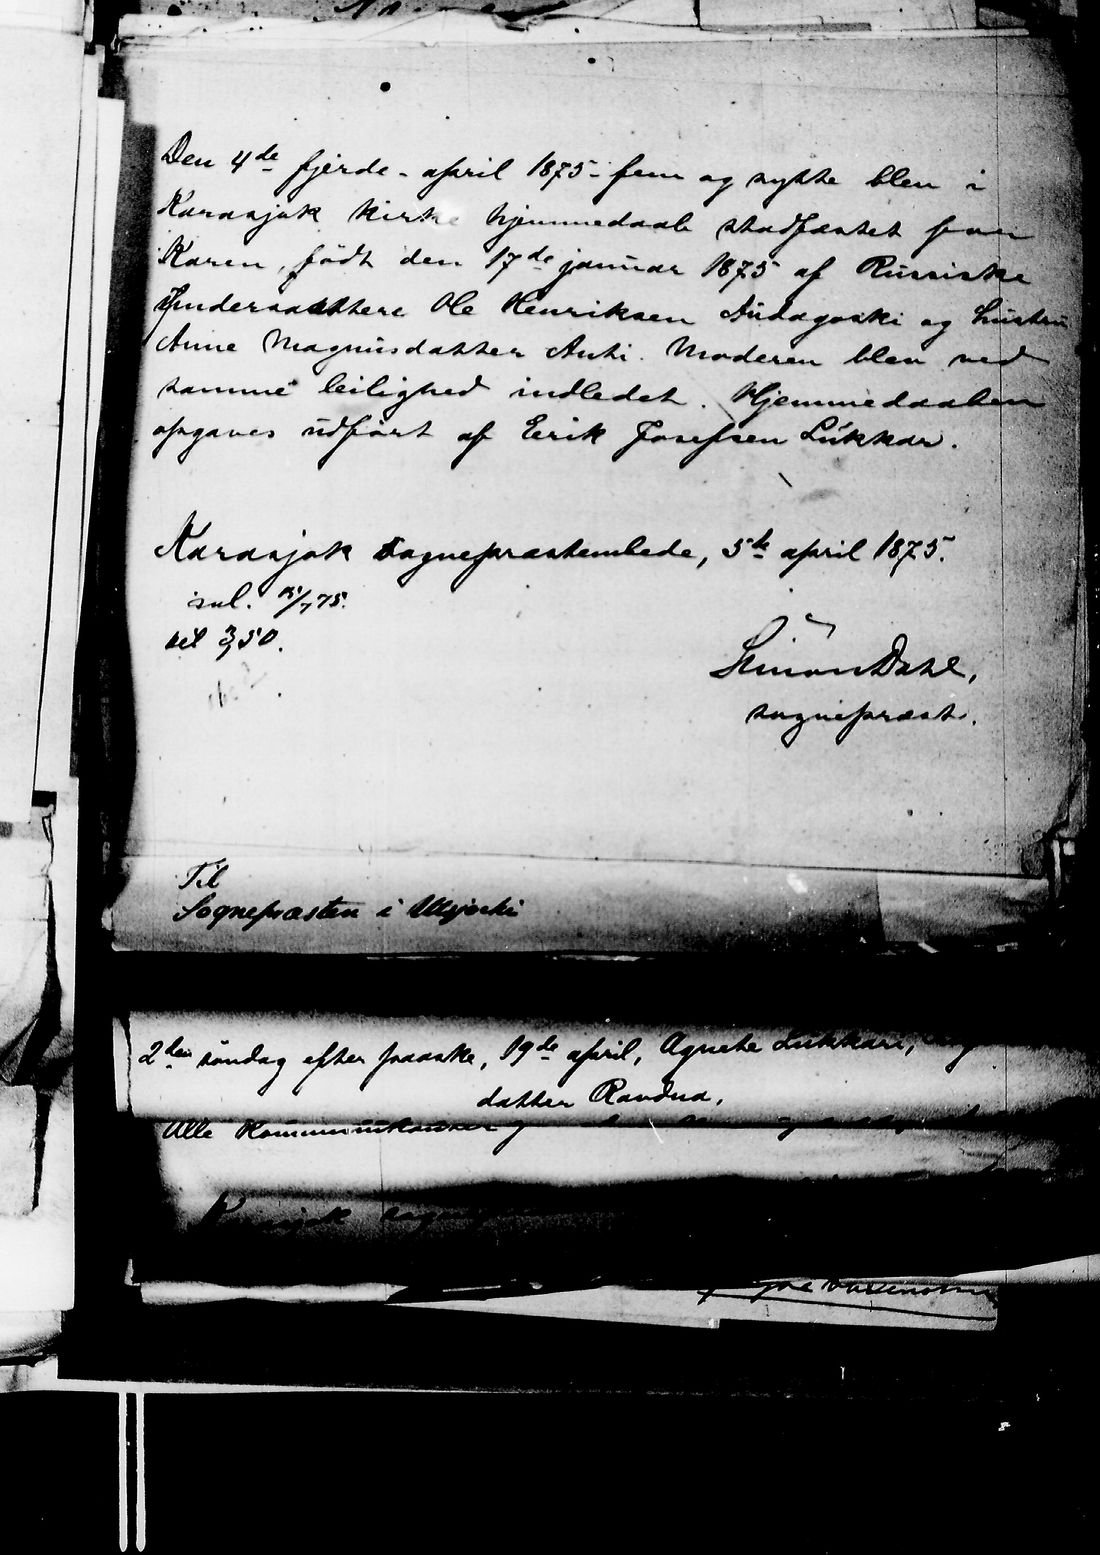 Den 4de fjerde - april 1875 - fem og sytte blev i
Karasjok kirke hjemmedaab stadfæstet paa
Karen, født den 17de januar 1875 af Russiske
Undersaattere Ole Henriksen og hustru
Anne Magnusdatter Anti. Moderen blev ved
samme leilighed indledet. Hjemmedaaben
opgaves udført af Eerik Josefsen Lukkar.
Karasjok Sognepræstembede, 5te april 1875.
75.
Simon Dahl,
sognepræst.
Til
Sognepræsten i Utsjoki
2den søndag efter paaske, 19de april, Agnete Lukkari,
datter Ravdna.
Alle
Karasjok